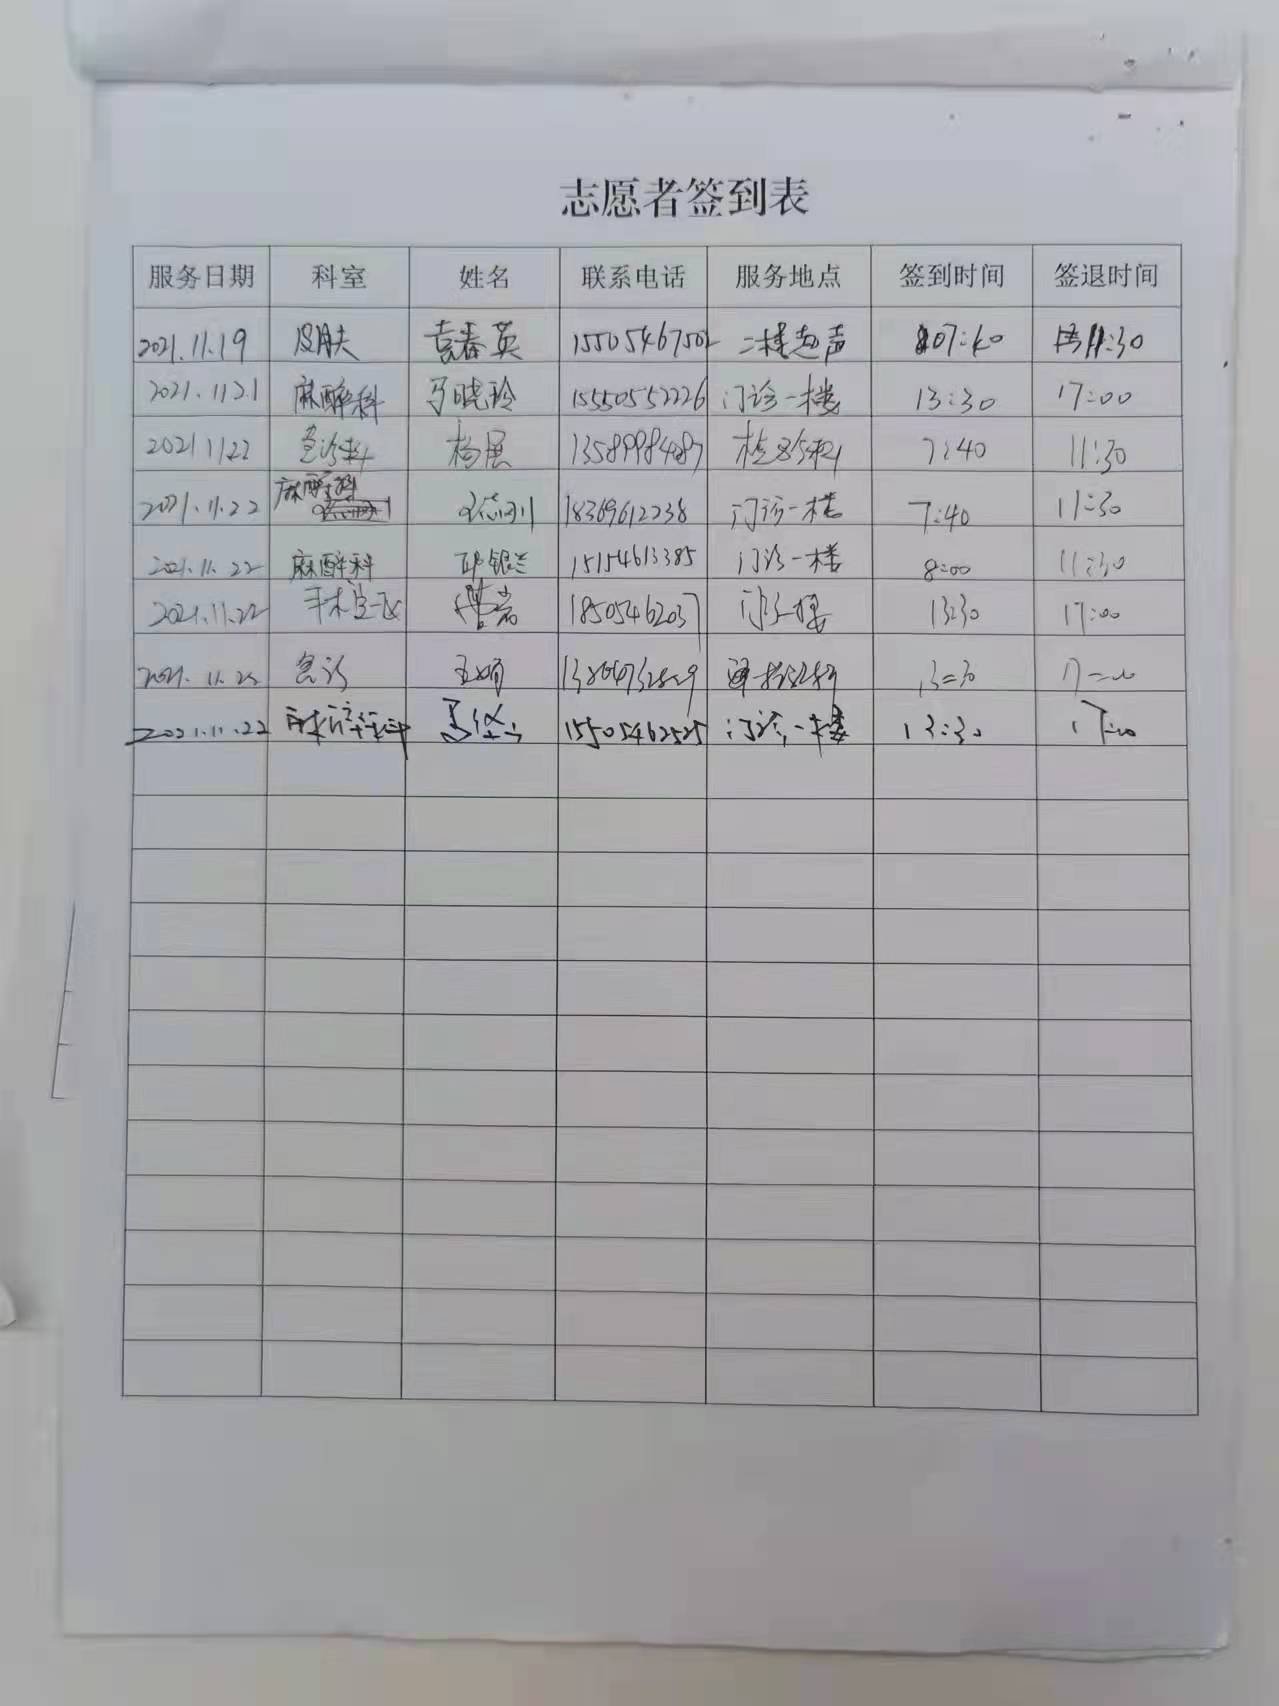 志愿者签到表
服务日期 科室 姓名 联系电话 服务地点 签到时间 签退时间
2021.11.19 皮肤 袁春英 1550546750 二楼超声 07:40 11:30
2021.11.21 麻醉科 马晓玲 15550552226 门诊一楼 13:30 17:00
2021 11 22 急诊科 杨展 13589984087 检验科 7:40 11:30
2021.11.22 麻醉科 18369612238 门诊一楼 7:40 11:30
2021.11.22 麻醉科 邱银兰 15154613385 门诊一楼 8:00 11:30
2021.11.22 手术室 18505462037 13:30 17:00
2021.11.22 急诊 王娟 13:30 17:00
2021.11.22 15505462525 门诊一楼 13:30 17:00